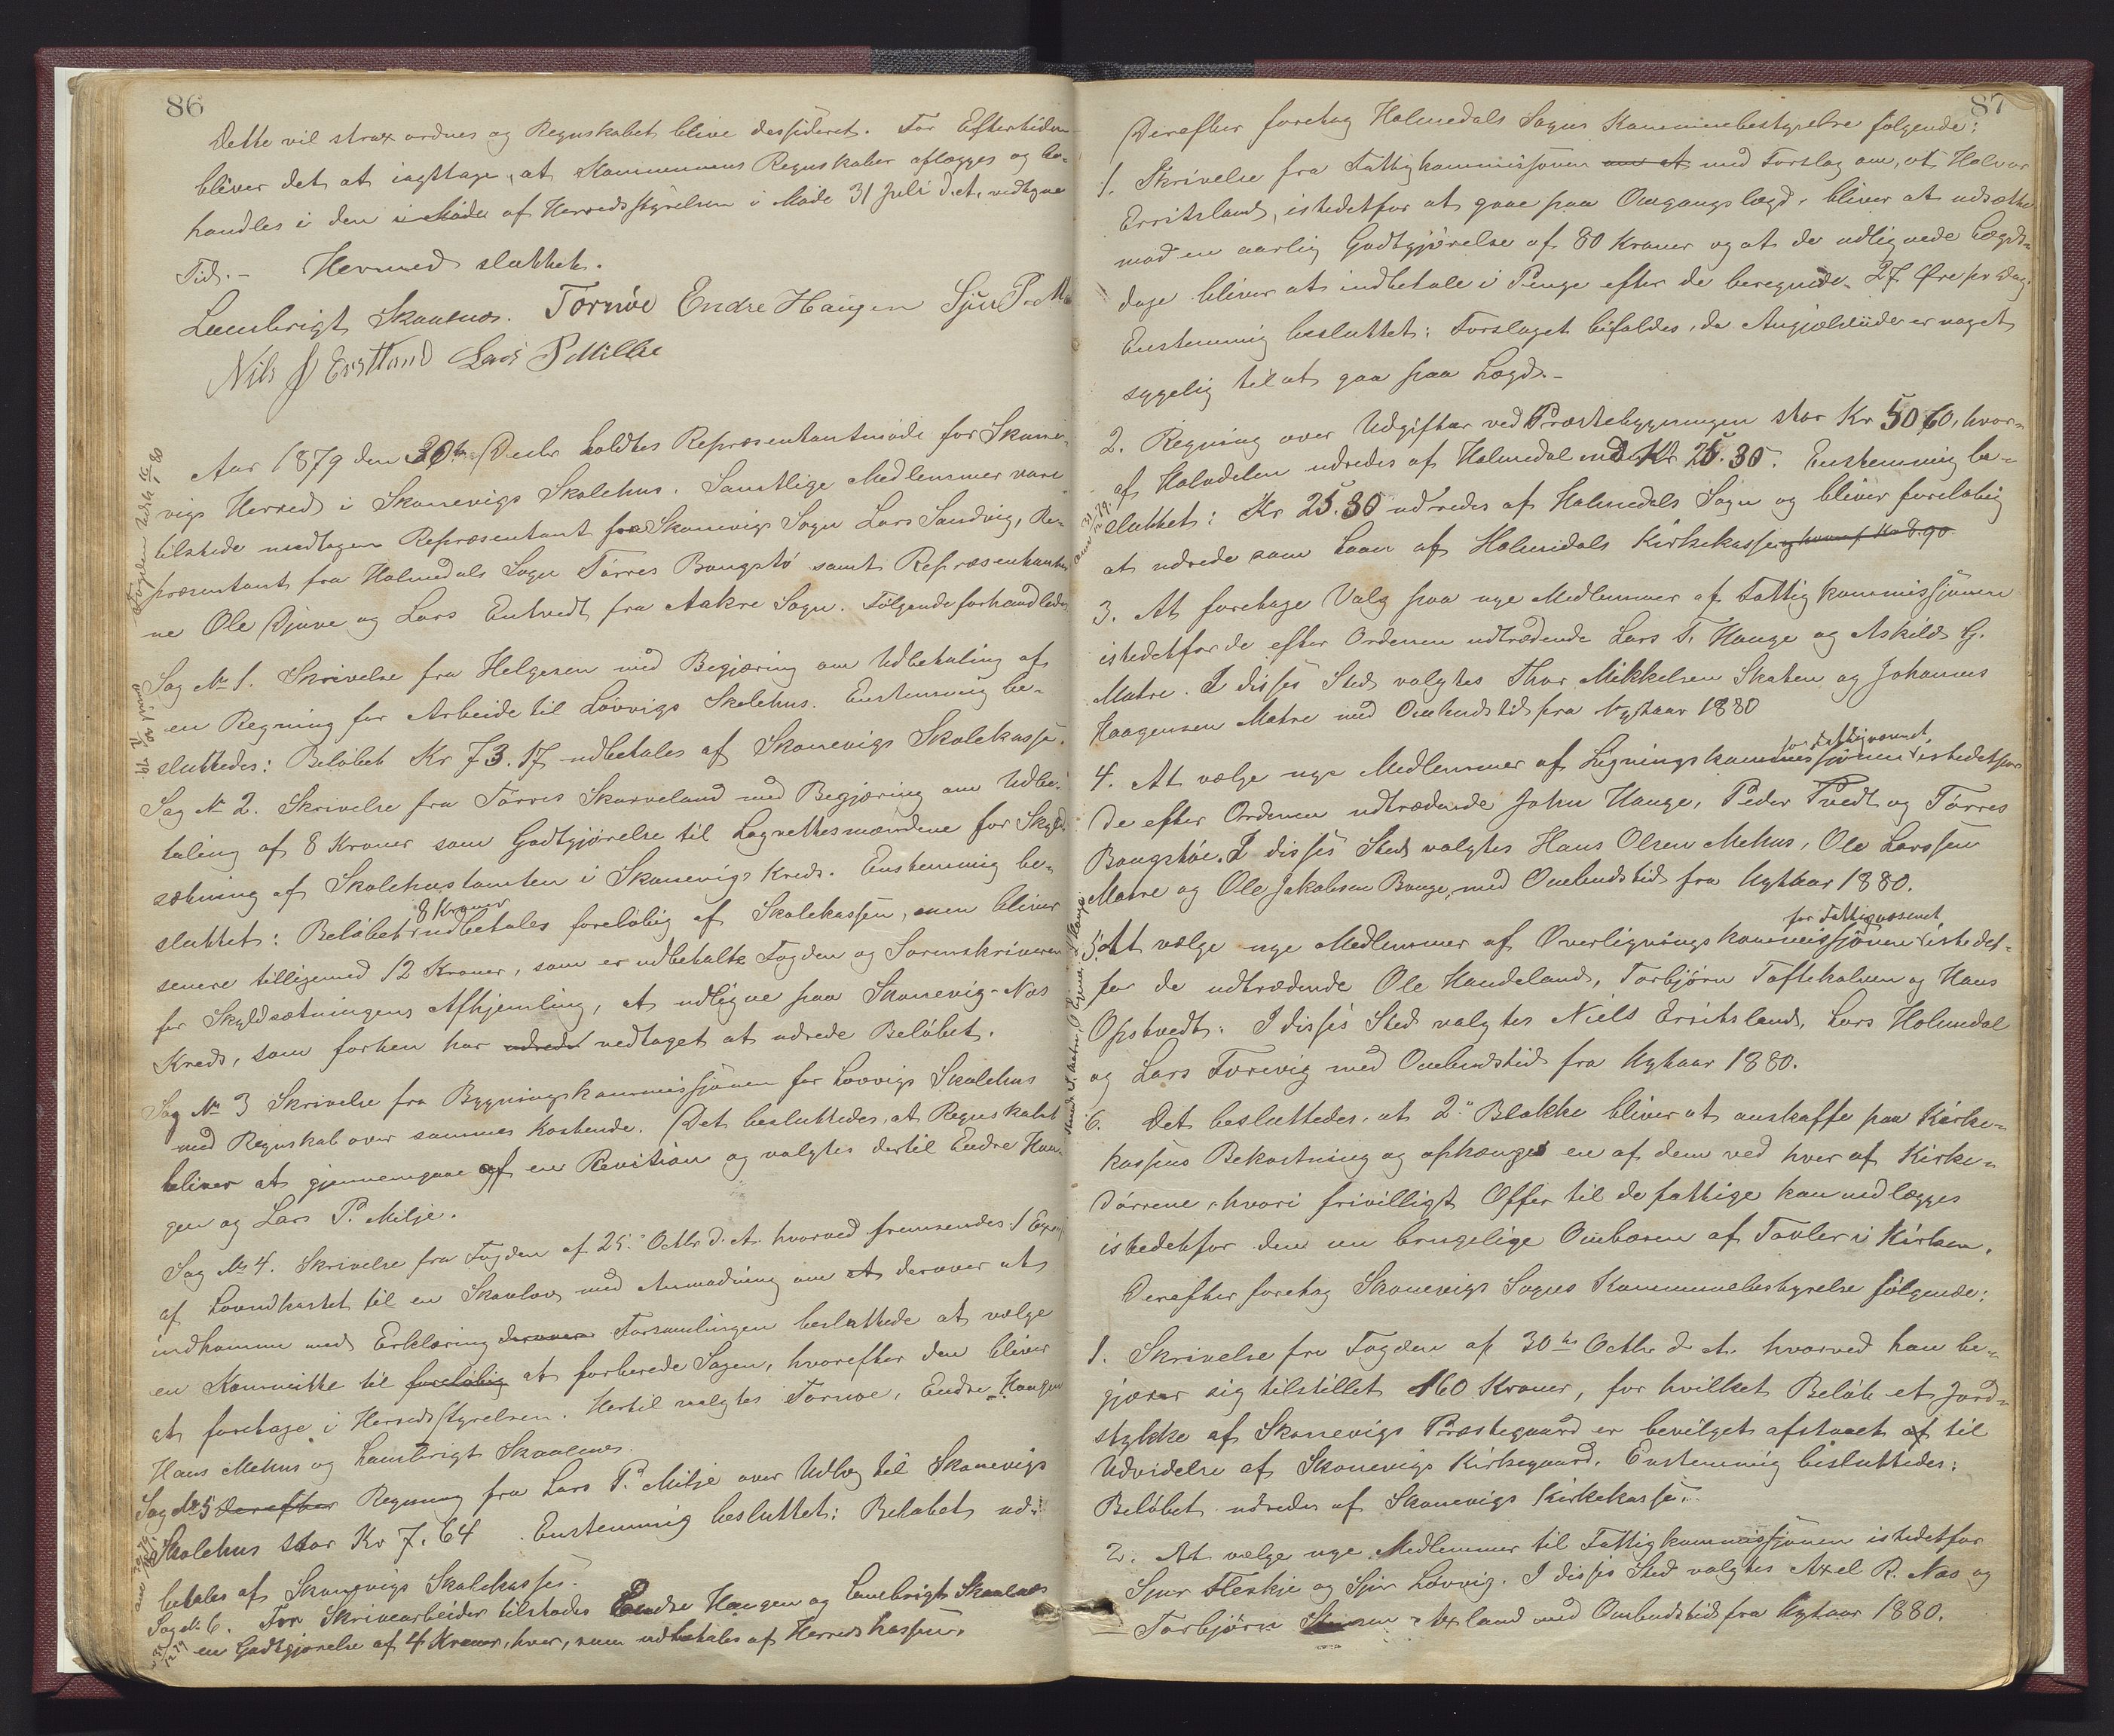 86
Dette vil strax ordnes og Regnskabet blive desideret. For Eftertiden
bliver det at iagttage, at Kommunens Regnskaber aflægges og be-
handles i den i Møde af Herredsstyrelsen i Møde 31 Juli d. A. vedtagne
Tid. - Hermed sluttet.
Lambrigt Skaalnes. Tornøe Endre Haugen Sjur P. M
Nils J Lars P Milje
Aar 1879 den 30te Decbr holdtes Repræsentantmøde for Skone-
vigs Herred i Skonevigs Skolehus. Samtlige Medlemmer vare
tilstede undtagen Repræsentant fra Skonevigs Sogn Lars Sandvig, Re-
præsentant fra Holmedals Sogn Tørres Bougstø samt Repræsentanter-
ne Ole Djuve og Lars Entvedt fra Aakre Sogn. Følgende forhandledes
Sag No 1. Skrivelse fra Helgesen med Begjæring om Udbetaling af
en Regning for Arbeide til Løvvigs Skolehus. Enstemmig be-
sluttedes: Beløbet Kr 73.17 udbetales af Skonevigs Skolekasse.
Sag No 2. Skrivelse fra Tørres Skorveland med Begjæring om Udbe-
taling af 8 Kroner som Godtgjørelse til Lagrettesmændene for Skyld-
sætning af Skolehustomten i Skonevigs Kreds. Enstemmig be-
8 Kroner
sluttet: Beløbet udbetales foreløbig af Skolekassen, men bliver
senere tilligemed 12 Kroner, som er udbetalte Fogden og Sorenskriveren
for Skyldsætningens Afhjemling, at udligne paa Skonevig-Næs
Kreds, som forhen har udredet vedtaget at udrede Beløbet.
Sag No 3 Skrivelse fra Bygningskommissionen for Løvvigs Skolehus
med Regnskab over sammes Kostende. Det besluttedes, at Regnskabet
bliver at gjennemgaae af en Revision og valgtes dertil Endre Hau-
gen og Lars P. Milje.
Sag No 4. Skrivelse fra Fogden af 25. Octbr d. A. hvorved fremsendes 1 Expl
af Lovudkastet til en Skovlov med Anmodning om at derover at
indkomme med Erklæring derover Forsamlingen besluttede at vælge
en Kommitte til foreløbig at forberede Sagen, hvorefter den bliver
at foretage i Herredsstyrelsen. Hertil valgtes Tornøe, Endre Haugen
Hans Mehus og Lambrigt Skaalnes.
Sag No 5 Derefter Regning fra Lars P. Milje over Udlæg til Skonevigs
Skolehus stor Kr 7.64. Enstemmig besluttet: Beløbet ud-
betales af Skonevigs Skolekasse.
Sag No 6. For Skrivearbeider tilstodes Endre Haugen og Lambrigt Skaalnes
en Godtgjørelse af 4 Kroner, hver, som udbetales af Herredskassen.
87
Derefter foretog Holmedals Sogns Kommunebestyrelse følgende:
1. Skrivelse fra Fattigkommissionen om at med Forslag om, at Halvor
Erritsland, istedetfor at gaae paa Omgangslægd, bliver at udsætte
mod en aarlig Godtgjørelse af 80 Kroner og at de udlignede Lægds-
dage bliver at indbetale i Penge efter de beregnede 27 Øre pr Dag.
Enstemmig besluttet: Forslaget bifaldes, da Angjældende er noget
sygelig til at gaa paa Lægd.-
2. Regning over Udgifter ved Præstebygningen stor Kr 50 60, hvor-
af Halvdelen udredes af Holmedal med Kr 25.30. Enstemmig be-
sluttet: Kr 25.30 udredes af Holmedals Sogn og bliver foreløbig
at udrede som Laan af Holmedals Kirkekasse
3. At foretage Valg paa nye Medlemmer af Fattigkommissionen
istedetfor de efter Ordenen udtrædende Lars T. Hauge og Askild G.
Matre. I disses Sted valgtes Thor Mikkelsen Skaten og Johannes
Haagensen Matre med Ombudstid fra Nytaar 1880
for Fattigvæsenet
4. At vælge nye Medlemmer af Ligningskommissionen istedetfor
de efter Ordenen udtrædende John Hauge, Peder Tvedt og Tørres
Bougstøe. I disses Sted valgtes Hans Olsen Mehus, Ole Larssen
Matre og Ole Jakobsen Bouge, med Ombudstid fra Nytaar 1880.
for Fattigvæsenet
5. At vælge nye Medlemmer af Overligningskommissionen istedet-
for de udtrædende Ole Handeland, Torbjørn Toftekalven og Hans
Opstvedt. I disses Sted valgtes Niels Erritsland, Lars Holmedal
og Lars Torevig med Ombudstid fra Nytaar 1880.
6. Det besluttedes, at 2de Blokke bliver at anskaffe paa Kirke-
kassens Bekostning og ophænges en af dem ved hver af Kirke-
dørrene, hvori frivilligt Offer til de fattige kan nedlægges
istedetfor den nu brugelige Ombæren af Tavler i Kirken.
Derefter foretog Skonevigs Sogns Kommunebestyrelse følgende:
1. Skrivelse fra Fogden af 30te Octbr d. A. hvorved han be-
gjærer sig tilstillet 160 Kroner, for hvilket Beløb et Jord-
stykke af Skonevigs Præstegaard er bevilget afstaaet af til
Udvidelse af Skonevigs Kirkegaard. Enstemmig besluttedes:
Beløbet udredes af Skonevigs Kirkekasse.
2. At vælge nye Medlemmer til Fattigkommissionen istedetfor
Sjur Fleskje og Sjur Løvvig. I disses Sted valgtes Axel R. Næs og
Torbjørn Axland med Ombudstid fra Nytaar 1880.